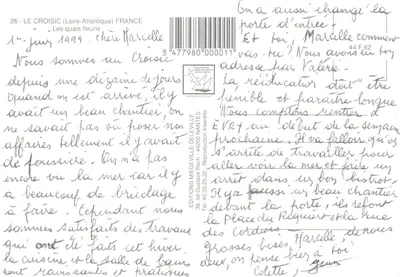 26 - LE CROISIC (Loire-Atlantique) FRANCE
Les quais fleuris
1er juin 1999. Chère Marcelle
Nous sommes au Croisic
depuis une dizaine de jours
quand on est arrivé, il y
avait un beau chantier, on
ne savait pas où poser nos
affaires tellement il y avait
de poussière. On n'a pas
encore vu la mer car il y
a beaucoup de bricolage
à faire. Cependant nous
sommes satisfaits des travaux
qui ont été faits cet hiver
la cuisine et la salle de bain
sont ravissantes et pratiques
3 477980 000011
EDITIONS MEDEVILLE
44 F 62
On a aussi changé la
porte d'entrée.
Et toi, Marcelle comment
vas-tu? Nous avons eu ton
adresse par Valérie.
La rééducation doit être
pénible et paraître longue
Nous comptons rentrer à
EVRY au début de la semaine
prochaine. Il va falloir qu'on
s'arrête de travailler pour
aller voir la mer et faire un
arrêt dans un bon bistrot
Il y a aussi un beau chantier
devant la porte, ils refont
la place du et la rue
des Cordiers. Marcelle, de nous
deux, grosses bises,
on pense bien à toi
Colette,